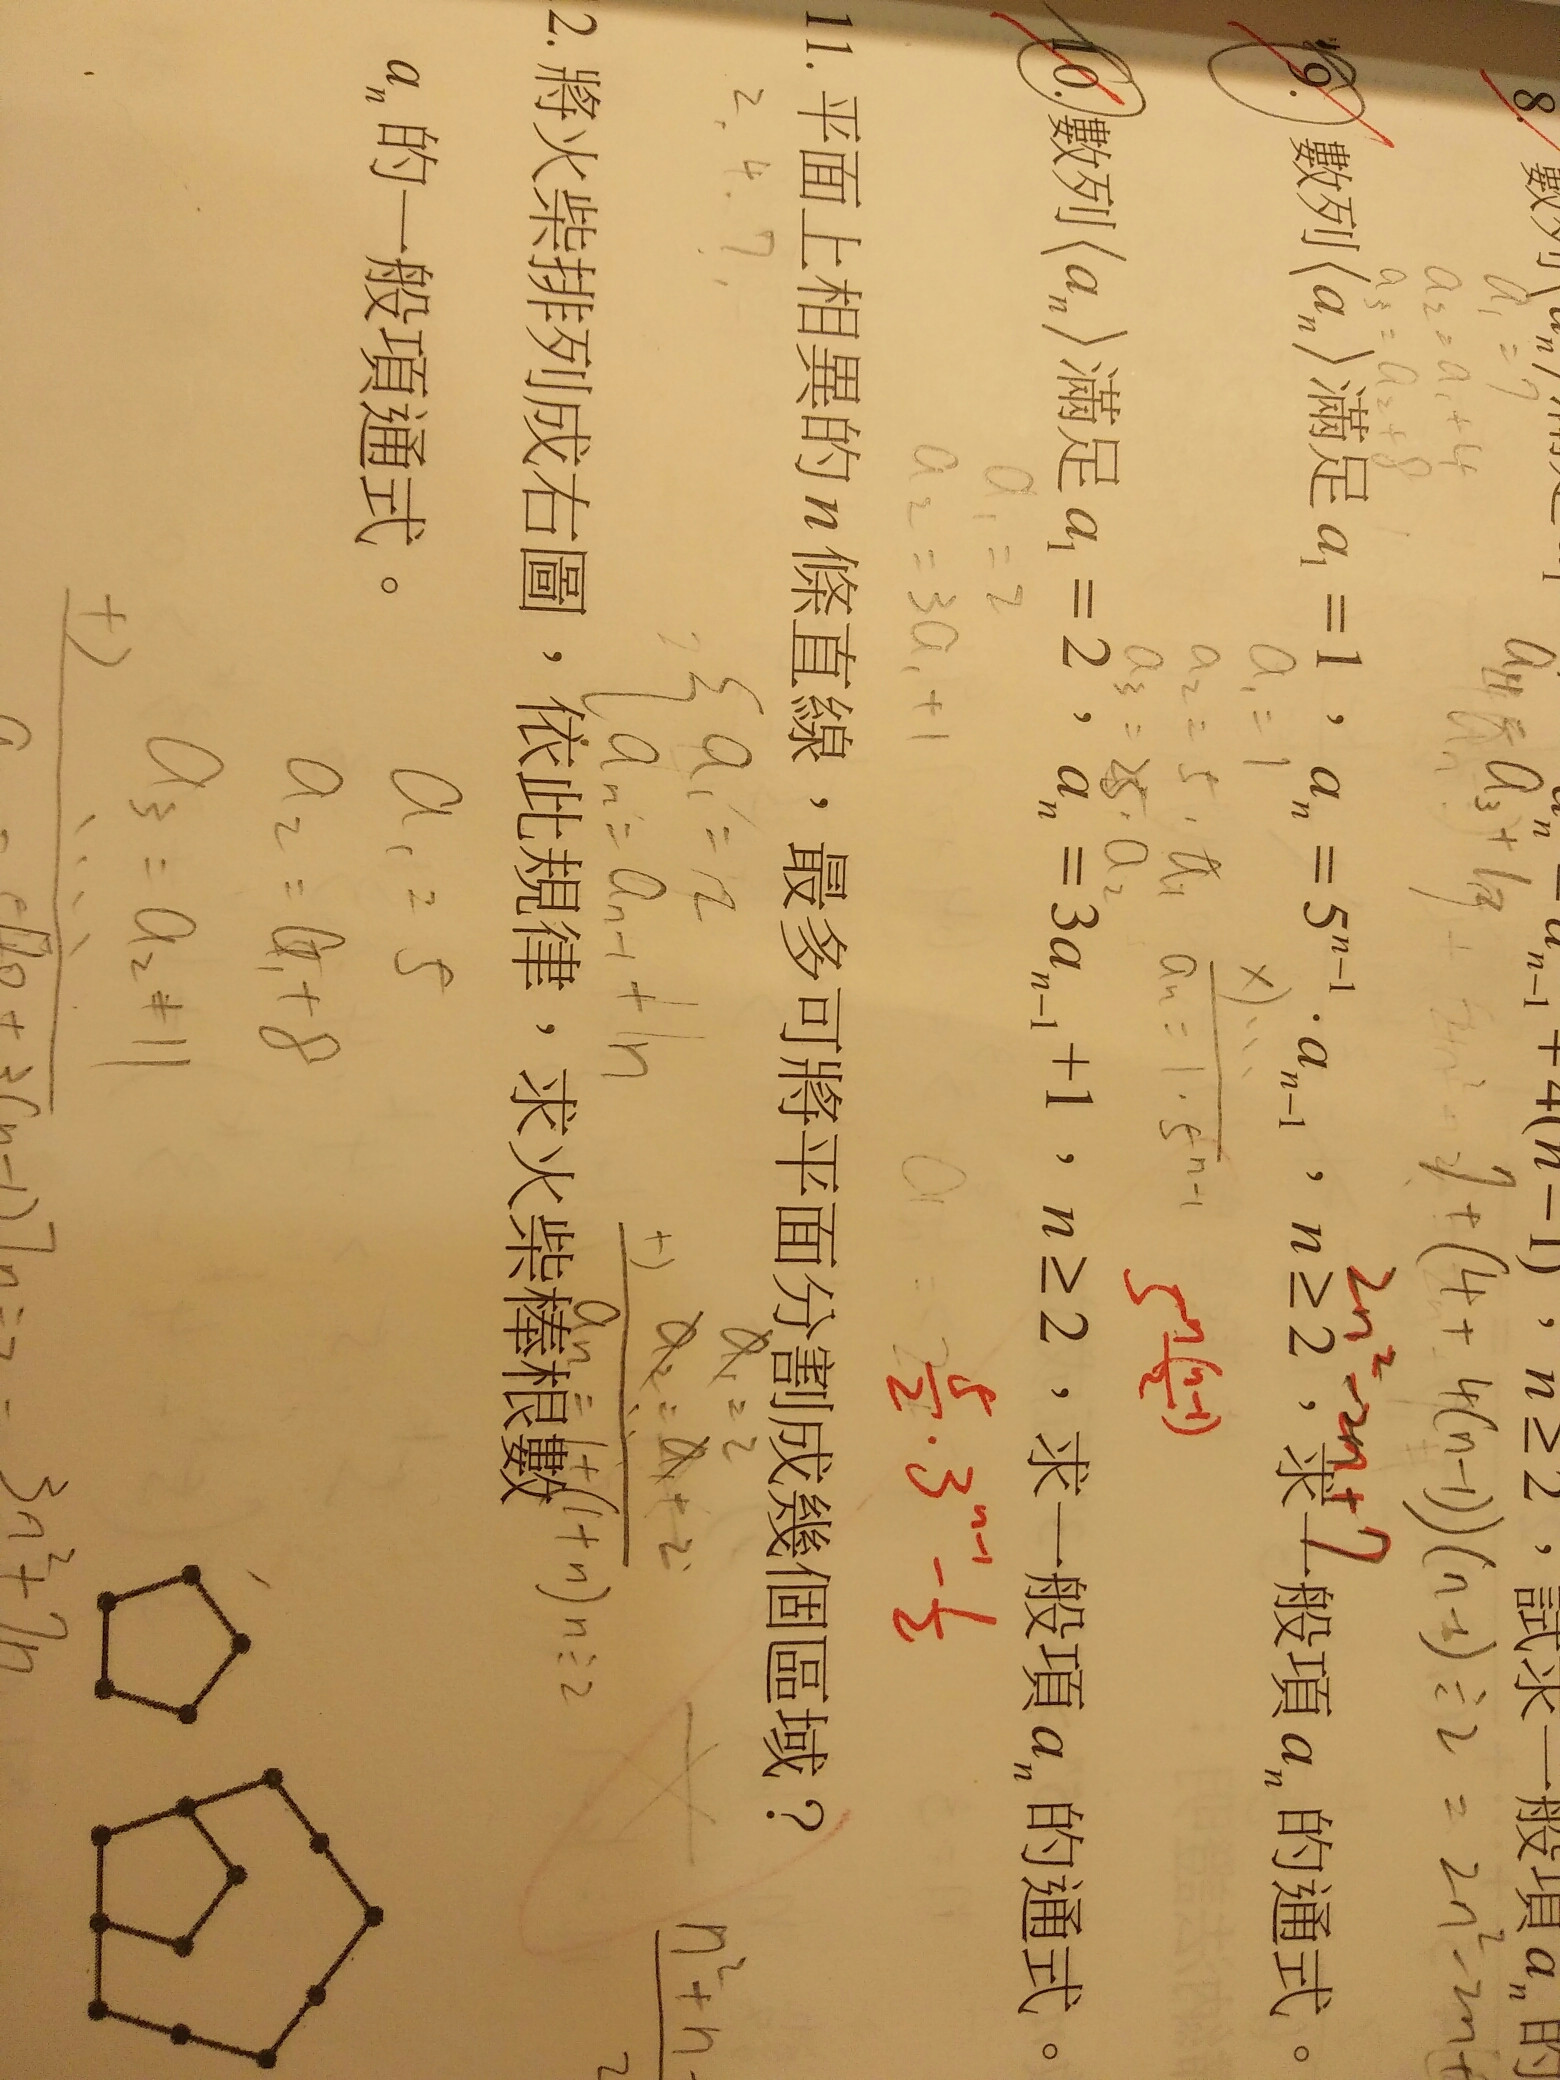 8. 數列⟨aₙ⟩滿足 = aₙ₋₁ + 4(n−1),n ≥ 2,試求一般項 aₙ 的
a₁ = 7
a₂ = a₁ + 4
a₃ = a₂ + 8
7 + (4 + 4(n−1))(n−1) ÷ 2 = 2n² − 2n +
2n² − 2n + 7
9. 數列⟨aₙ⟩滿足 a₁ = 1,aₙ = 5ⁿ⁻¹ · aₙ₋₁,n ≥ 2,求一般項 aₙ 的通式。
a₁ = 1
a₂ = 5 · a₁
a₃ = 25 · a₂
×)
aₙ = 1 · 5ⁿ⁻¹
5^(n(n−1)/2)
10. 數列⟨aₙ⟩滿足 a₁ = 2,aₙ = 3aₙ₋₁ + 1,n ≥ 2,求一般項 aₙ 的通式。
a₁ = 2
a₂ = 3a₁ + 1
5/2 · 3ⁿ⁻¹ − 1/2
11. 平面上相異的 n 條直線,最多可將平面分割成幾個區域?
2, 4, 7,
a₁ = 2
aₙ = aₙ₋₁ + n
a₁ = 2
a₂ = a₁ + 2
+)
aₙ = 1 + (1+n)n ÷ 2
n² + n
2
2. 將火柴排列成右圖,依此規律,求火柴棒根數
aₙ 的一般項通式。
a₁ = 5
a₂ = a₁ + 8
a₃ = a₂ + 11
+)